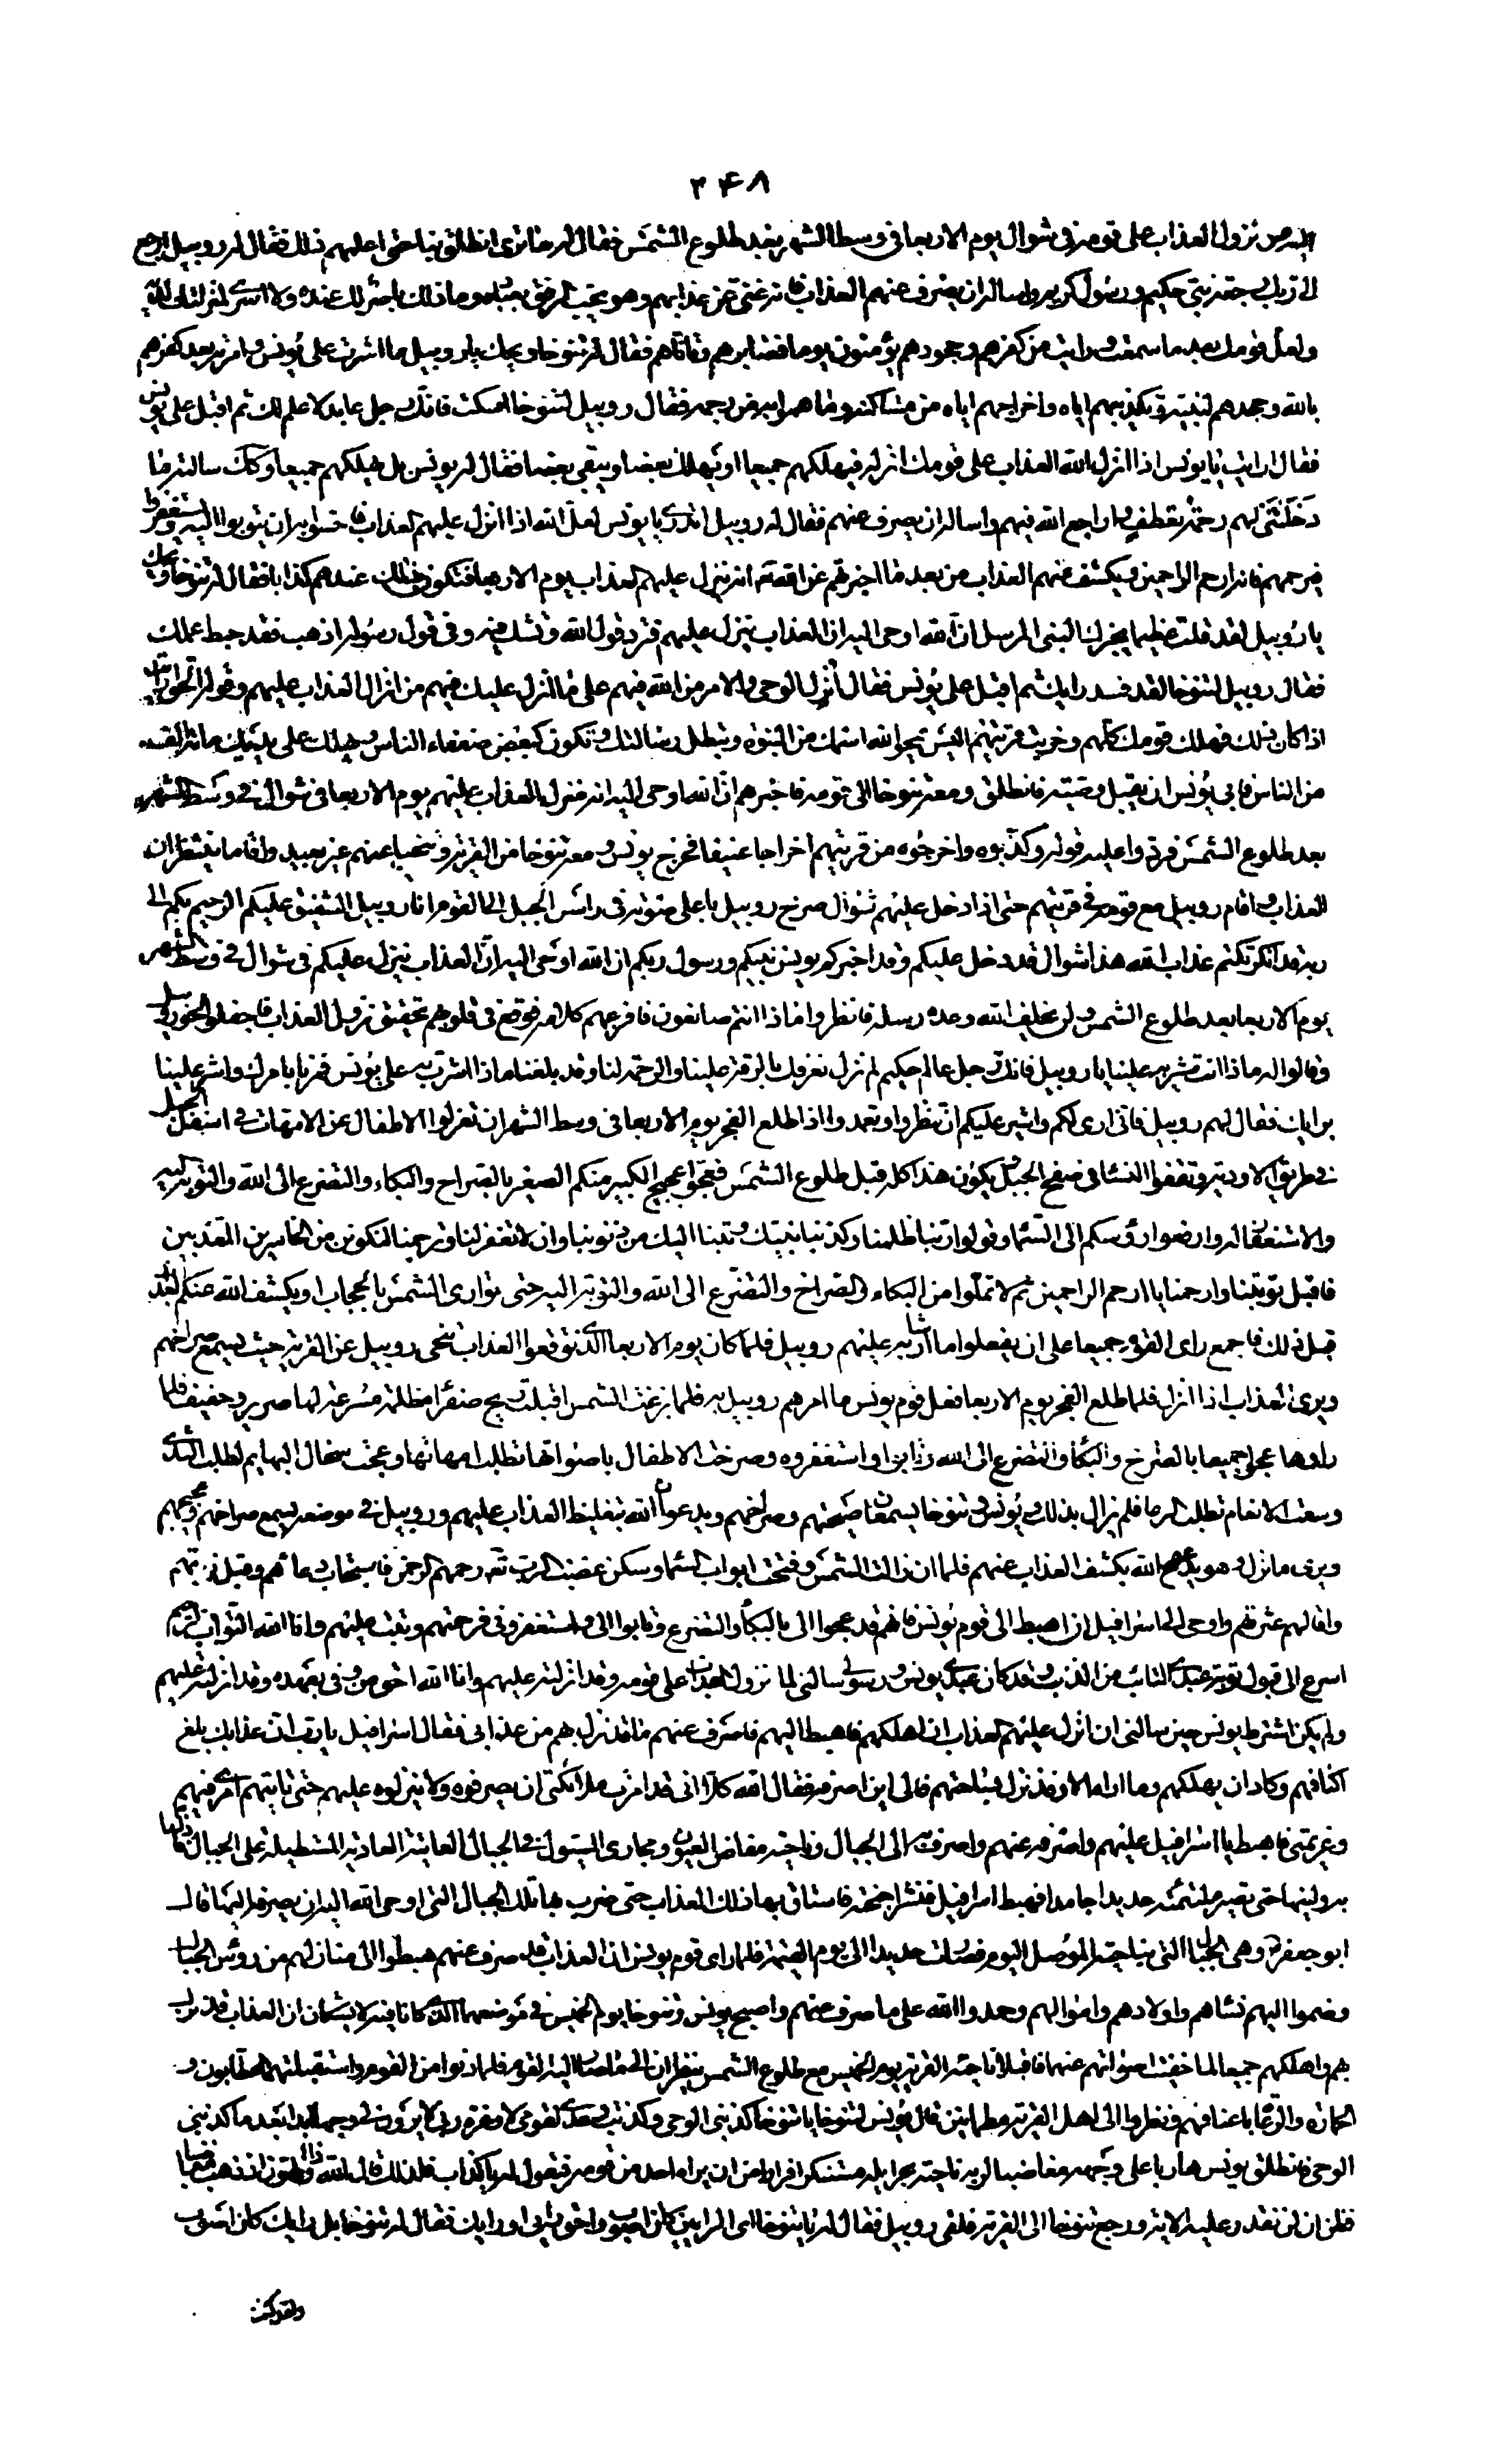 ۲۴۸
اليه من نزول العذاب على قومه فى شوال يوم الاربعا فى وسط الشهر بعد طلوع الشمس فقال له ما ترى انطلق بنا حتى اعلمهم ذلك فقال له روبيل ارجع
الى ربك رجعة نبى حكيم ورسول كريم واساله ان يصرف عنهم العذاب فانه غنى عن عذابهم وهو يحب الرفق بعباده وما ذلك باضر لك عنده ولا اسرى لمنزلتك لديه
ولعل قومك بعد ما سمعت ورايت من كفرهم وجحودهم يؤمنون يوما فصابرهم وتاتاهم فقال له تنوخا ويحك يا روبيل ما اشرت على يونس وامرته بعد كفرهم
بالله وجحدهم لنبيه وتكذيبهم اياه واخراجهم اياه من مساكنه وما هموا به من رجمه فقال روبيل لتنوخا اسكت فانك رجل عابد لا علم لك ثم اقبل على يونس
فقال ارايت يا يونس اذا انزل الله العذاب على قومك انزله فيهلكهم جميعا او يهلك بعضا ويبقى بعضا فقال له يونس بل يهلكهم جميعا وكذلك سالته ما
دخلتنى لهم رحمة تعطف فاراجع الله فيهم واساله ان يصرف عنهم فقال له روبيل اتدرى يا يونس لعل الله اذا انزل عليهم العذاب فاحسوا به ان يتوبوا اليه ويستغفروا
فيرحمهم فانه ارحم الراحمين ويكشف عنهم العذاب من بعد ما اخبرتهم عن الله انه ينزل عليهم العذاب يوم الاربعا فتكون بذلك عندهم كذابا فقال له تنوخا ويحك
يا روبيل لقد قلت عظيما يخبرك النبى المرسل ان الله اوحى اليه ان العذاب ينزل عليهم فترد قول الله وتشك فيه وفى قول رسوله اذهب فقد حبط عملك
فقال روبيل لتنوخا لقد فسد رايك ثم اقبل على يونس فقال انزل الوحى والامر من الله فيهم على ما انزل عليك فيهم من انزال العذاب عليهم وقوله الحق ارايت
اذا كان ذلك فهلك قومك كلهم وخربت قريتهم اليس يمحو الله اسمك من النبوة وتبطل رسالتك وتكون كبعض ضعفاء الناس ويهلك على يديك مائة الف
من الناس فابى يونس ان يقبل وصيته فانطلق ومعه تنوخا الى قومه فاخبرهم ان الله اوحى اليه انه منزل العذاب عليهم يوم الاربعا فى شوال فى وسط الشهر
بعد طلوع الشمس فردوا عليه قوله وكذبوه واخرجوه من قريتهم اخراجا عنيفا فخرج يونس ومعه تنوخا من القرية وتنحيا عنهم غير بعيد واقاما ينتظران
العذاب واقام روبيل مع قومه فى قريتهم حتى اذا دخل عليهم شوال صرخ روبيل باعلى صوته فى راس الجبل الى القوم انا روبيل الشفيق عليكم الرحيم بكم الى
ربه قد انكرتكم عذاب الله هذا شوال قد دخل عليكم وقد اخبركم يونس نبيكم ورسول ربكم ان الله اوحى اليه ان العذاب ينزل عليكم فى شوال فى وسط الشهر
يوم الاربعا بعد طلوع الشمس ولن يخلف الله وعده رسله فانظروا ماذا انتم صانعون فافزعهم كلامه فوقع فى قلوبهم تحقيق نزول العذاب فاجفلوا نحو روبيل
وقالوا له ماذا انت مشير به علينا يا روبيل فانك رجل عالم حكيم لم نزل نعرفك بالرقة علينا والرحمة لنا وقد بلغنا ماذا اشرت به على يونس فمرنا بامرك واشر علينا
برايك فقال لهم روبيل فانى ارى لكم واشير عليكم ان تنظروا وتعمدوا اذا طلع الفجر يوم الاربعا فى وسط الشهر ان تعزلوا الاطفال عن الامهات فى اسفل الجبل
فى طريق الاودية وتقفوا النسا فى سفح الجبل ويكون هذا كله قبل طلوع الشمس فعجوا عجيج الكبير منكم الصغير بالصراخ والبكاء والتضرع الى الله والتوبة اليه
والاستغفار له وارفعوا رؤسكم الى السماء وقولوا ربنا ظلمنا وكذبنا نبيك وتبنا اليك من ذنوبنا وان لا تغفر لنا وترحمنا لنكونن من الخاسرين المعذبين
فاقبل توبتنا وارحمنا يا ارحم الراحمين ثم لا تملوا من البكاء والصراخ والتضرع الى الله والتوبة اليه حتى توارى الشمس بالحجاب او يكشف الله عنكم العذاب
قبل ذلك فاجمع راى القوم جميعا على ان يفعلوا ما اشار به عليهم روبيل فلما كان يوم الاربعا الذى توقعوا العذاب تنحى روبيل عن القرية حيث يسمع صراخهم
ويرى العذاب اذا نزل فلما طلع الفجر يوم الاربعا فعل قوم يونس ما امرهم روبيل به فلما بزغت الشمس اقبلت ريح صفرا مظلمة مسرعة لها صرير وحفيف فلما
راوها عجوا جميعا بالصراخ والبكا والتضرع الى الله وتابوا واستغفروه وصرخت الاطفال باصواتها تطلب امهاتها وعجت سخال البهايم تطلب الثدى
وسعت الانعام تطلب الرعا فلم يزالوا بذلك ويونس وتنوخا يسمعان صيحتهم وصراخهم ويدعوان الله بتغليظ العذاب عليهم وروبيل فى موضعه يسمع صراخهم وعجيجهم
ويرى ما نزل وهو يدعو الله بكشف العذاب عنهم فلما ان زالت الشمس وفتحت ابواب السما وسكن غضب الرب تعالى رحمهم الرحمن فاستجاب دعائهم وقبل توبتهم
واقالهم عثرتهم واوحى الى اسرافيل ان اهبط الى قوم يونس فانهم قد عجوا الى بالبكا والتضرع وتابوا الى واستغفرونى فرحمتهم وتبت عليهم وانا الله التواب الرحيم
اسرع الى قبول توبة عبدى التائب من الذنب وقد كان عبدى يونس ورسولى سالنى نزول العذاب على قومه وقد انزلته عليهم وانا الله احق من وفى بعهده وقد انزلته عليهم
ولم يكن اشترط يونس حين سالنى ان انزل عليهم العذاب ان اهلكهم فاهبط اليهم فاصرف عنهم ما قد نزل بهم من عذابى فقال اسرافيل يا رب ان عذابك بلغ
اكتافهم وكاد ان يهلكهم وما اراه الا وقد نزل بساحتهم فالى اين اصرفه فقال الله كلا انى قد امرت ملائكتى ان يصرفوه ولا ينزلوه عليهم حتى ياتيهم امرى فيهم
وعزيمتى فاهبط يا اسرافيل عليهم واصرفه عنهم واصرف به الى الجبال وناحية مفاض العيون ومجارى السيول فى الجبال العاتية العادية المستطيلة على الجبال فاذلها
به ولينها حتى تصير ملتئمة حديدا جامدا فهبط اسرافيل فنشر اجنحته فاستاق بها ذلك العذاب حتى ضرب بها تلك الجبال التى اوحى الله اليه ان يصرفه اليها قال
ابو جعفر وهى الجبال التى بناحية الموصل اليوم فصارت حديدا الى يوم القيمة فلما راى قوم يونس ان العذاب قد صرف عنهم هبطوا الى منازلهم من رؤس الجبال
وضموا اليهم نساهم واولادهم واموالهم وحمدوا الله على ما صرف عنهم واصبح يونس وتنوخا يوم الخميس فى موضعهما الذى كانا فيه لا يشكان ان العذاب قد نزل
بهم واهلكهم جميعا لما خفيت اصواتهم عنهما فاقبلا ناحية القرية يوم الخميس مع طلوع الشمس ينظران الى ما صار اليه القوم فلما دنوا من القوم واستقبلتهم الحطابون و
الحمارة والرعاة باعناقهم ونظروا الى اهل القرية مطمئنين قال يونس لتنوخا يا تنوخا كذبنى الوحى وكذبت وعدى لقومى لا وعزة ربى لا يرون لى وجها ابدا بعد ما كذبنى
الوحى فانطلق يونس هاربا على وجهه مغاضبا لربه ناحية بحر ايله مستنكرا فرارا من ان يراه احد من قومه فيقول له يا كذاب فلذلك قال الله وذا النون اذ ذهب مغاضبا
فظن ان لن نقدر عليه الاية ورجع تنوخا الى القرية فلقى روبيل فقال له يا تنوخا اى الرايين كان اصوب واحق ان يتبع رايى او رايك فقال له تنوخا بل رايك كان اصوب
ولقد كنت